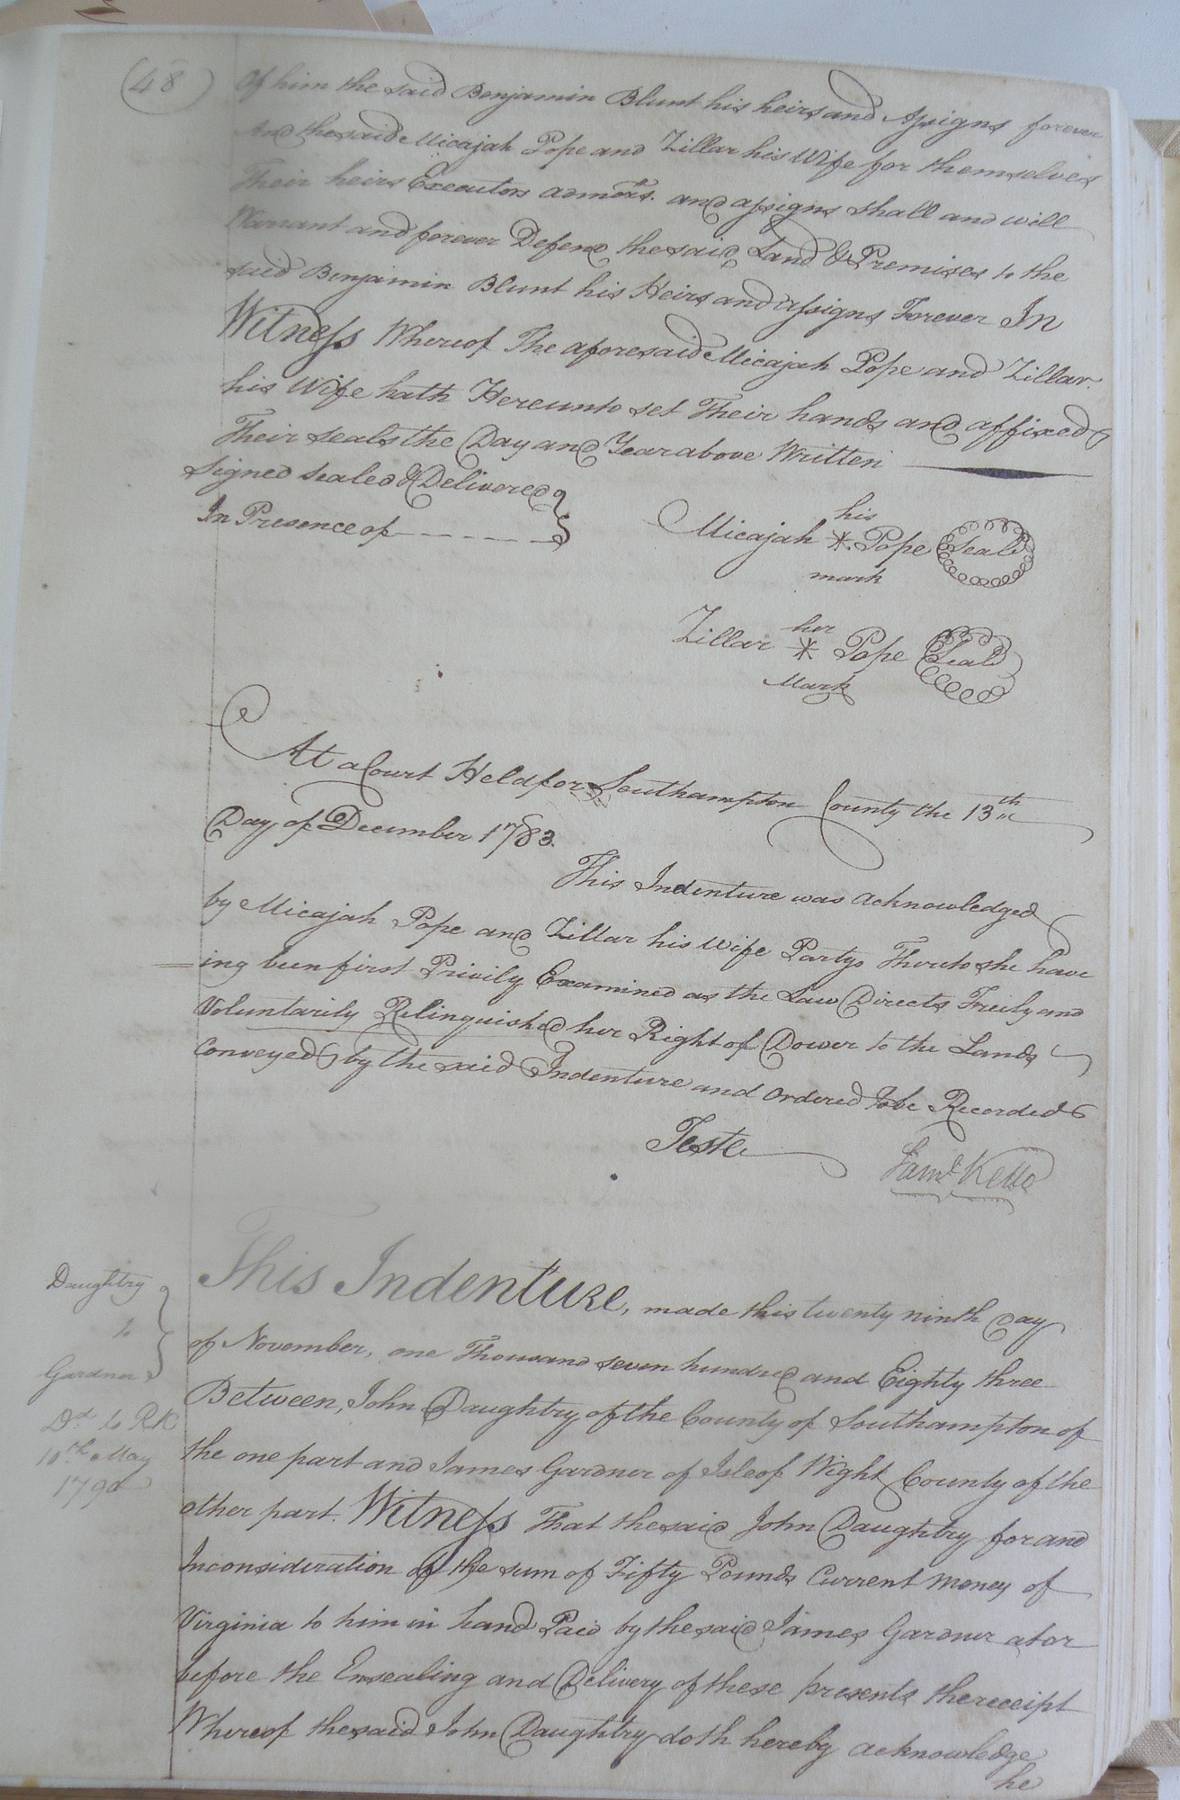 (48)
Of him the said Benjamin Blunt his heirs and Assigns forever
And the said Micajah Pope and Zillar his Wife for themselves
Their heirs Executors admors. and assigns shall and will
Warrant and forever Defend the said Land & Premises to the
said Benjamin Blunt his Heirs and assigns Forever In
Witness Whereof The aforesaid Micajah Pope and Zillar
his Wife hath Hereunto set Their hands and affixed
Their seals the Day and Year above Written
Signed sealed & Delivered }
In Presence of - - - - - }
his
Micajah * Pope Seal
mark
her
Zillar * Pope Seal
Mark
At a Court Held for Southampton County the 13th
Day of December 1783.
This Indenture was acknowledged
by Micajah Pope and Zillar his Wife Partys Thereto she have
ing been first Privily Examined as the Law Directs Freily and
Voluntarily Relinquished her Right of Dower to the Lands
Conveyed by the said Indenture and ordered to be Recorded
Teste
Saml Kello
Daughtry
to
Gardner
Dd. to RK
10th May
1790
This Indenture, made this twenty ninth Day
of November, one Thousand seven hundred and Eighty three
Between, John Daughtry of the County of Southampton of
the one part and James Gardner of Isle of Wight County of the
other part. Witness That the said John Daughtry for and
Inconsideration of the sum of Fifty Pounds Current money of
Virginia to him in hand Paid by the said James Gardner at or
before the Ensealing and Delivery of these presents the receipt
Whereof the said John Daughtry doth hereby acknowledge
he